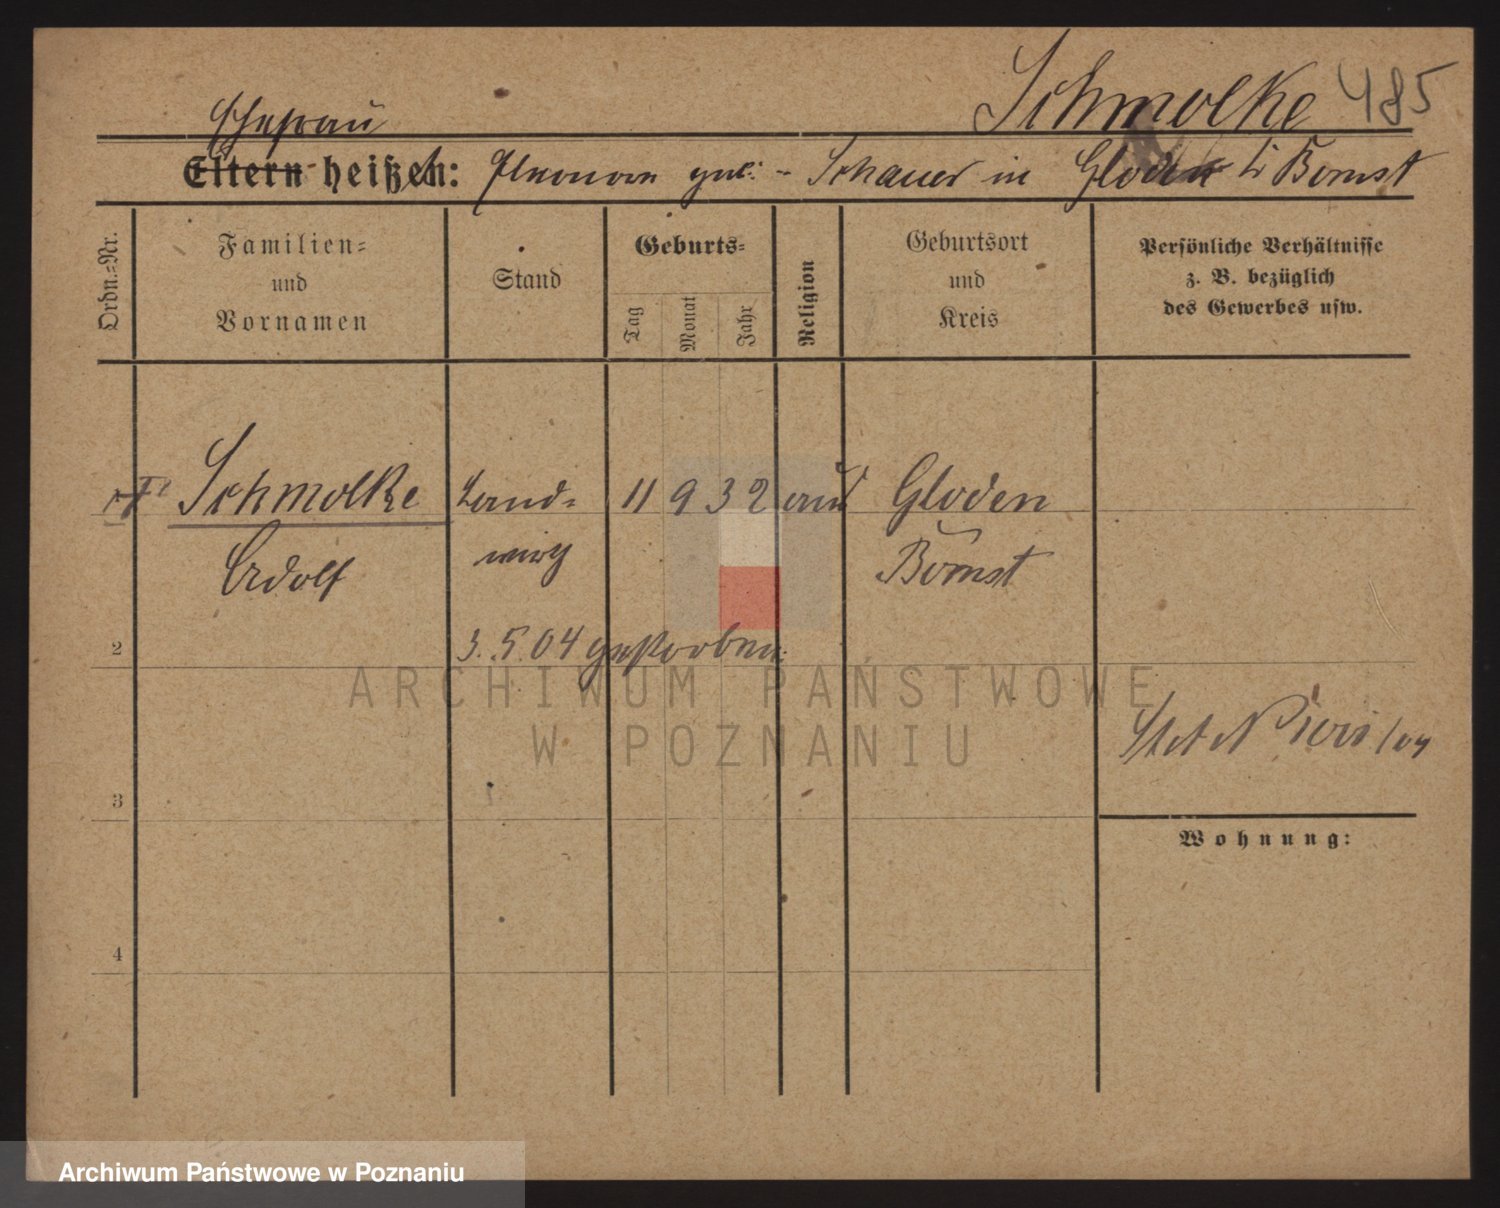 Schmolke 485
Ehefrau
Eltern heißen: Eleonore geb: - Schauer in Gloden Kr Bomst
Ordn.=Nr.
Familien=
und
Vornamen
Stand
Geburts=
Tag
Monat
Jahr
Religion
Geburtsort
und
Kreis
Persönliche Verhältnisse
z. B. bezüglich
des Gewerbes usw.
Schmolke Land= 11 9 32 Gloden
Adolf wirth Bomst
2
3.5.04 gestorben.
ARCHIWUM PAŃSTWOWE
W POZNANIU
3
Wohnung:
4
Archiwum Państwowe w Poznaniu